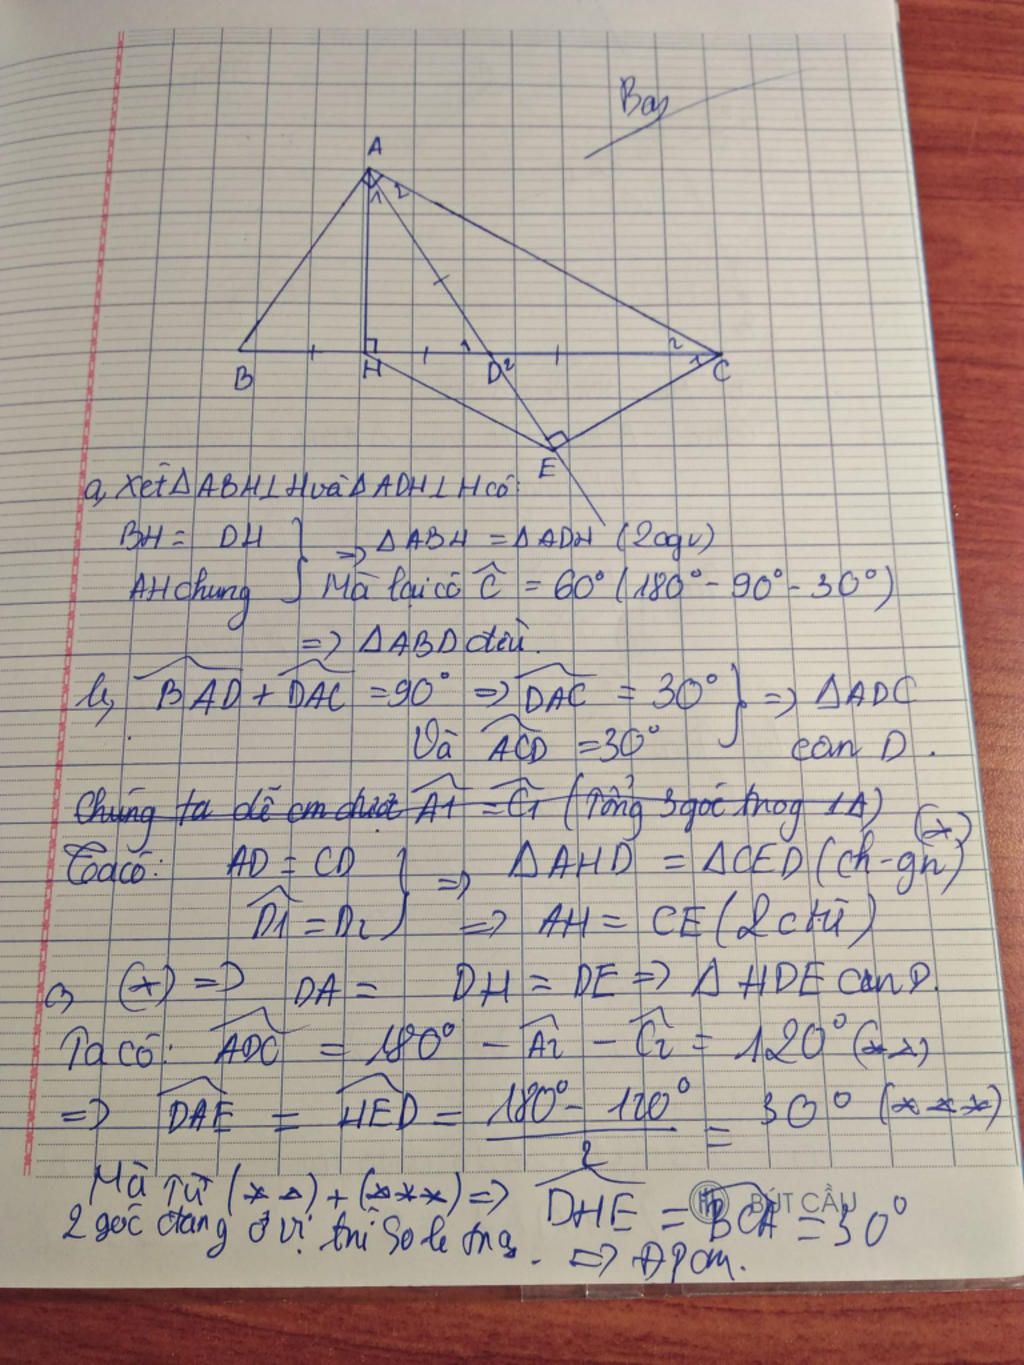 Bài
A
1
2
1
2
2
1
B
H
D
C
E
a, Xét ΔABH⊥H và ΔADH⊥H có:
BH = DH } => ΔABH = ΔADH (2cgv)
AH chung } Mà lại có Ĉ = 60° (180° - 90° - 30°)
=> ΔABD đều.
b, BAD + DAC = 90° => DAC = 30° } => ΔADC
Và ACD = 30° } cân D.
Chúng ta dễ cm được A1 = C1 (Tổng 3 góc trnog 1Δ)
Ta có: AD = CD } => ΔAHD = ΔCED (ch-gn) (*)
D1 = D2 } => AH = CE (2 ctứ)
c, (*) => DA = DH = DE => ΔHDE cân D.
Ta có: ADC = 180° - A2 - C2 = 120° (**)
=> DAE = HED = 180° - 120° / 2 = 30° (***)
Mà Từ (**) + (***) => DHE = BCA = 30°
2 góc đang ở vị trí So le trg. => Đpcm.
BÚT CẦU